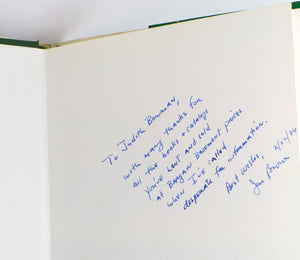 To Judith Bowman,
with many thanks for
all the books + catalogs
you've lent and sold
at Bargain Basement prices
when I've called
desperate for information.
Best Wishes,